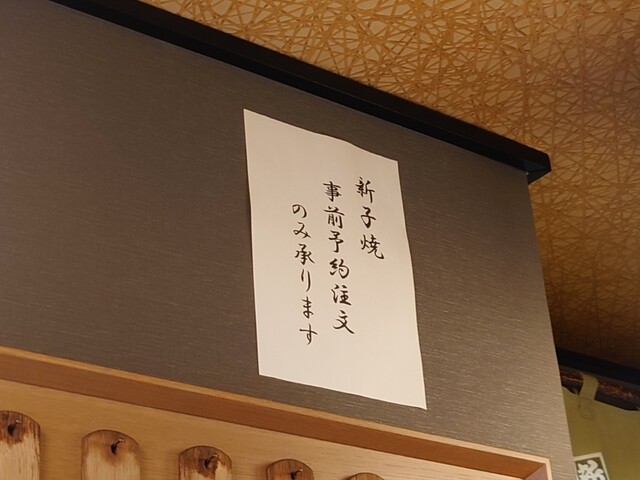 新子焼
事前予約注文
のみ承ります